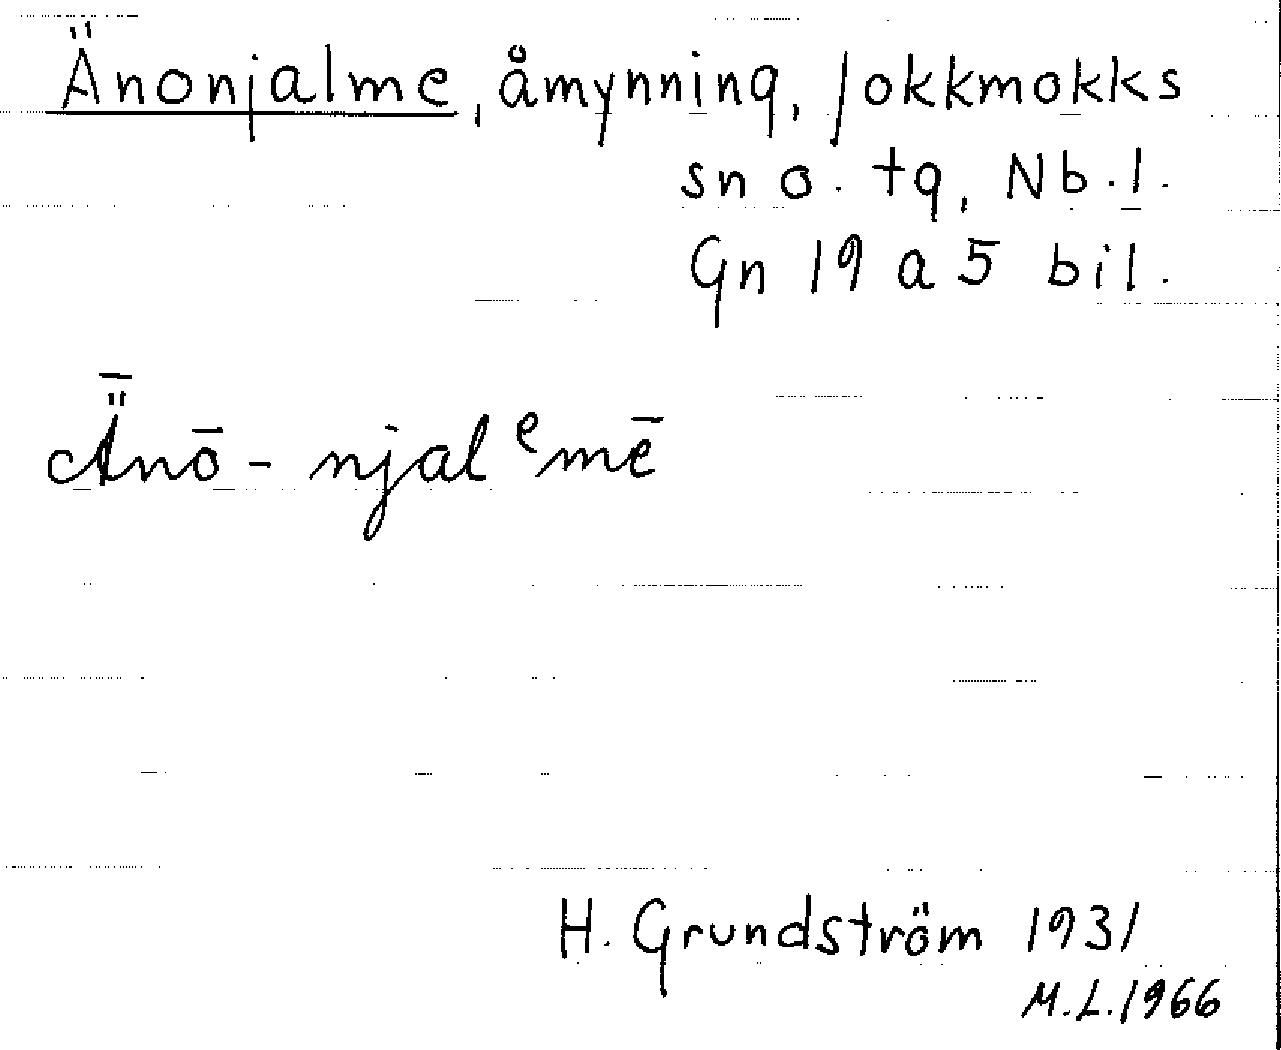 Änonjalme, åmynning, Jokkmokks
sn o. tg, Nb. l.
Gn 19 a 5 bil.
Ǟnō - njalᵉmē
H. Grundström 1931
M.L. 1966